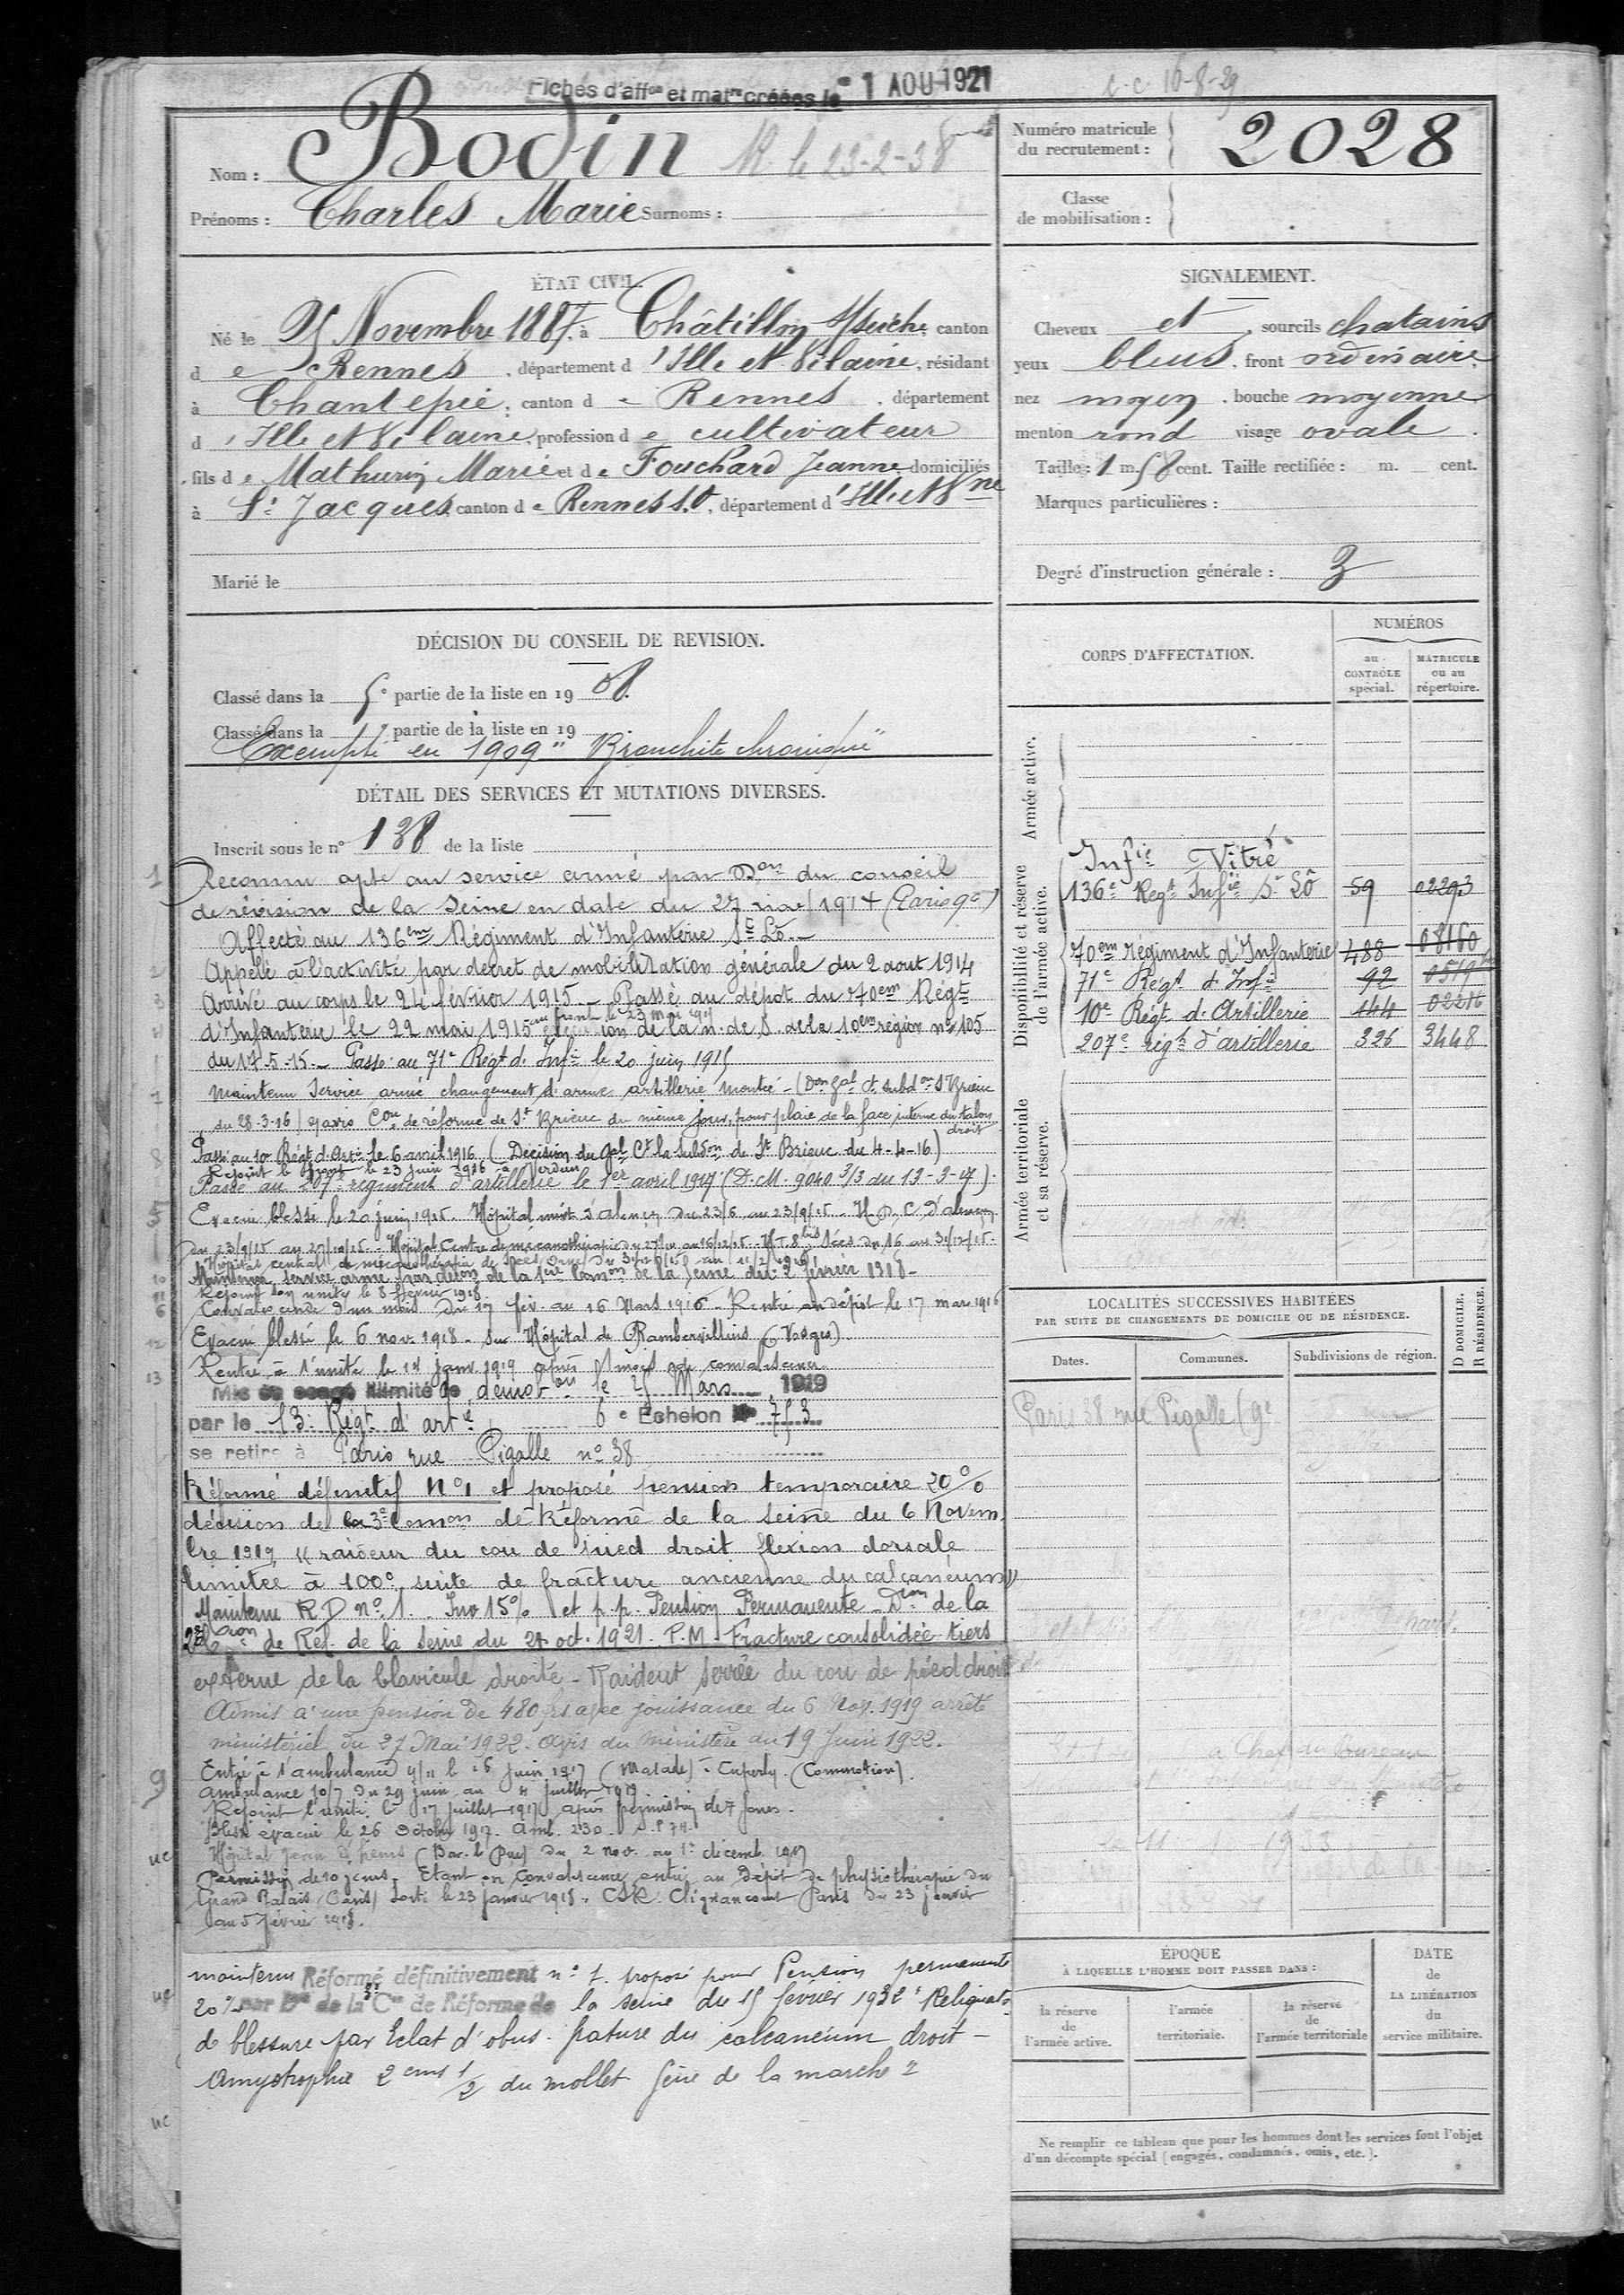 Fiches d'aff^on et mat^re créées le 1 AOU 1921
c.c 16-8-29
Nom : Bodin
R. le 23-2-38
Prénoms : Charles Marie Surnoms :
Numéro matricule du recrutement : 2028
Classe de mobilisation :
ÉTAT CIVIL.
Né le 25 Novembre 1887, à Châtillon s/Seiche, canton
d e Rennes, département d 'Ille et Vilaine, résidant
à Chantepie, canton d e Rennes, département
d 'Ille et Vilaine, profession d e cultivateur
fils d e Mathurin Marie et d e Fouchard Jeanne, domiciliés
à St Jacques, canton d e Rennes S.O, département d'Ille et V^ne
Marié le
SIGNALEMENT.
Cheveux et, sourcils chatains
yeux bleus, front ordinaire,
nez moyen, bouche moyenne
menton rond visage ovale.
Taille : 1 m. 58 cent. Taille rectifiée : m. cent.
Marques particulières :
Degré d'instruction générale : 3
DÉCISION DU CONSEIL DE REVISION.
Classé dans la 5e partie de la liste en 1908.
Classé dans la partie de la liste en 19
Exempté en 1909 "Bronchite chronique"
DÉTAIL DES SERVICES ET MUTATIONS DIVERSES.
Inscrit sous le n° 138 de la liste
Reconnu apte au service armé par D^on du conseil
de révision de la Seine en date du 27 nov 1914 (Paris 9e)
Affecté au 136em Régiment d'Infanterie St Lô.-
Appelé à l'activité par décret de mobilisation générale du 2 aout 1914
Arrivé au corps le 24 février 1915.- Passé au dépôt du 70em Régt
au front le 23 mai 1915
d'Infanterie le 22 mai 1915 exécution de la n. de S. de la 10em région n° 105
du 17-5-15.- Passé au 71e Régt d'Infie le 20 juin 1915
Maintenu Service armé changement d'arme artillerie montée - (D^on Gal Ct subd^on St Brieuc
du 28-3-16) avis C^on de réforme de St Brieuc du même jour, pour plaie de la face interne du talon
droit
Passé au 10e Régt d'Artie le 6 avril 1916 (Décision du Gal Ct la Subd^on de St Brieuc du 4-4-16)
Rejoint le front le 23 juin 1916 à Verdun
Passé au 207e régiment d'artillerie le 1er avril 1917 (D. M. 9040 3/3 du 13-3-17).
Evacué blessé le 20 juin 1915. Hôpital mixte d'alençon du 23/6 au 23/9/15 - H. D. C. D'alençon
du 23/9/15 au 27/10/15 - Hôpital Centre de mécanothérapie du 27/10 au 16/12/15 - H T 8 bis Sées du 16 au 31/12/15.
Hôpital central de mécanothérapie de Sées Orne du 31/12/15 au 11/2/1916
Maintenu service armé par décon de la 1ère Com^on de la Seine du 2 février 1918-
Rejoint son unité le 8 février 1918.
Convalescence d'un mois du 17 fév. au 16 Mars 1916 - Rentré au dépôt le 17 mars 1916
Evacué blessé le 6 nov. 1918 - sur Hôpital de Rambervillers (Vosges)
Rentré à l'unité le 14 janv. 1919 après 1 mois de convalescence
Mis en congé illimité de démob^on le 25 Mars 1919
par le 13e Régt d'artie 6e Echelon 753
se retire à Paris rue Pigalle n° 38
Réformé définitif N°1 et proposé pension temporaire 20 %
décision de la 3e Com^on de Réforme de la Seine du 6 Novem
bre 1919 "raideur du cou de pied droit flexion dorsale
limitée à 100° suite de fracture ancienne du calcanéum"
Maintenu R D n° 1. Inv 15% et p.p. Pension Permanente - D^on de la
2e C^ion de Réf. de la Seine du 21 oct. 1921. P.M. Fracture consolidée tiers
externe de la Clavicule droite - Raideur serrée du cou de pied droit
Admis à une pension de 480 frs avec jouissance du 6 Nov. 1919 arrêté
ministériel du 27 Mai 1922. Avis du ministère du 19 Juin 1922.
Entré à l'ambulance 4/11 le 26 juin 1917 (Malade) à Cuperly. (Commotion).
ambulance 10/7 du 29 juin au 11 juillet 1917
Rejoint l'unité le 17 juillet 1917 après permission de 7 jours.
Blessé évacué le 26 Octobre 1917. Amb. 230. S.P 74.
Hôpital (Bar. le Duc) du 2 nov. au 1er décemb. 1917
Permission de 10 jours - Etant en Convalescence entré au Dépôt de physiothérapie du
Grand Palais (Paris) Sorti le 23 janvier 1918. Clignancourt Paris du 23 janvier
au 5 février 1918.
maintenu Réformé définitivement n° 1. proposé pour Pension permanente
20 % par D^on de la 3e C^on de Réforme de la Seine du 15 février 1932 "Reliquats
de blessure par éclat d'obus. frature du calcaneum droit -
Amyotrophie 2 cms 1/2 du mollet gêne de la marche"
CORPS D'AFFECTATION.
NUMÉROS
au CONTRÔLE spécial.
MATRICULE ou au répertoire.
Armée active.
Disponibilité et réserve de l'armée active.
Infie Vitré
136e Regt Infie St Lô 59 02293
70em régiment d'Infanterie 488 08160
71e Régt d'Infie 92 0519
10e Régt d'Artillerie 444 02216
207e régt d'artillerie 326 3448
Armée territoriale et sa réserve.
LOCALITÉS SUCCESSIVES HABITÉES
PAR SUITE DE CHANGEMENTS DE DOMICILE OU DE RÉSIDENCE.
D DOMICILE. R RÉSIDENCE.
Dates. Communes. Subdivisions de région.
Paris 38 rue Pigalle (9e
ÉPOQUE
À LAQUELLE L'HOMME DOIT PASSER DANS :
la réserve de l'armée active.
l'armée territoriale.
la réserve de l'armée territoriale
DATE de LA LIBÉRATION du service militaire.
Ne remplir ce tableau que pour les hommes dont les services font l'objet
d'un décompte spécial (engagés, condamnés, omis, etc.).